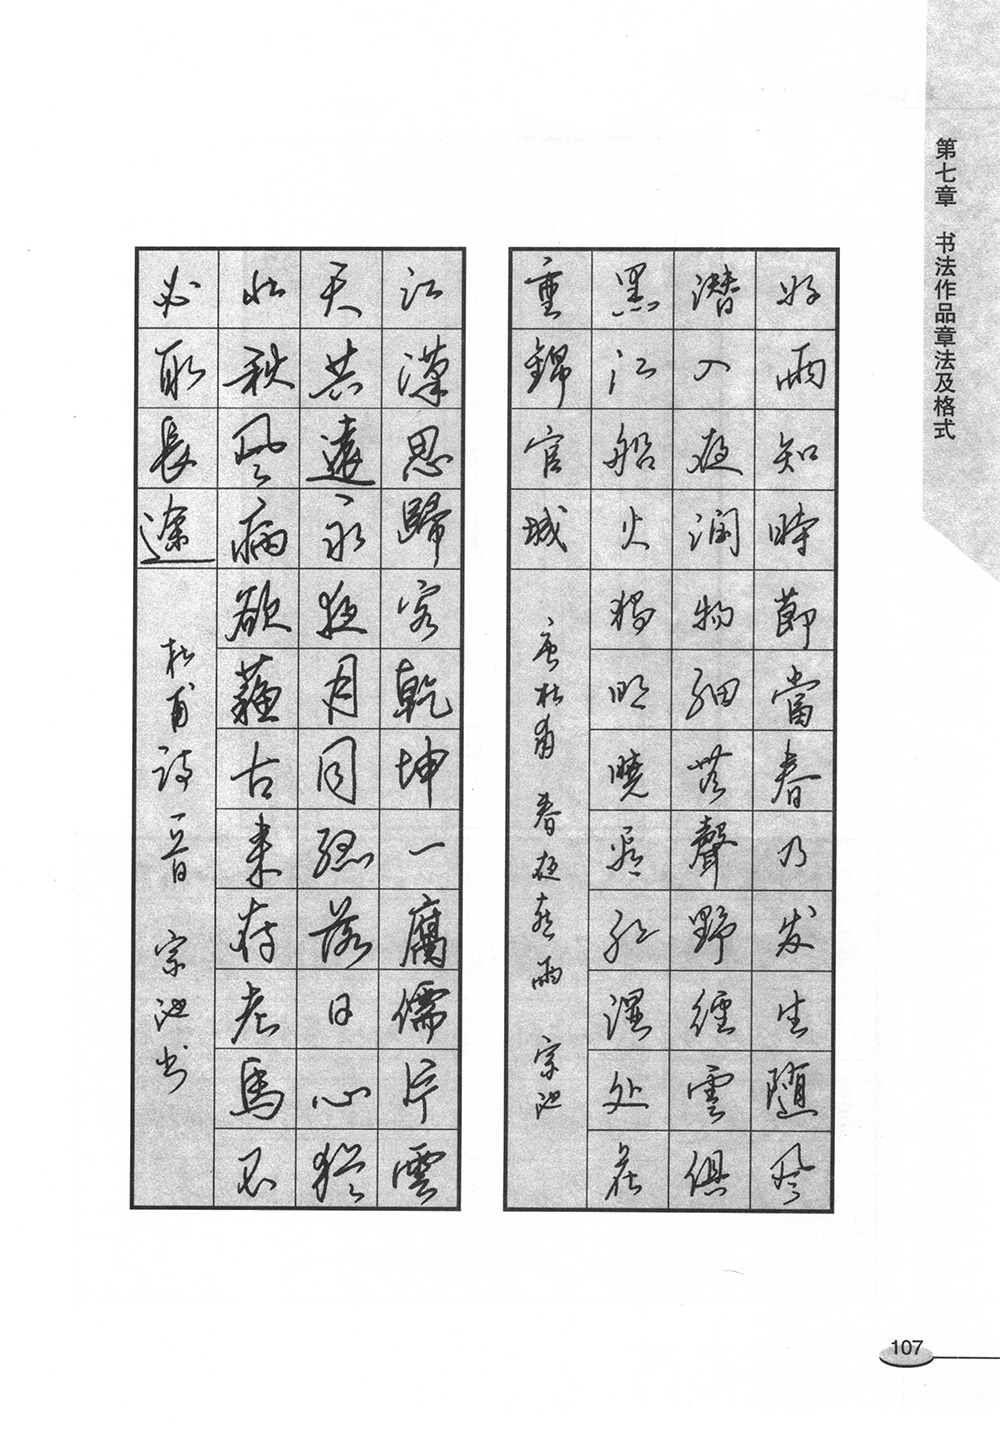 第七章 书法作品章法及格式
好雨知時節當春乃发生随风
潜入夜润物細無聲野徑雲俱
黑江船火獨明曉看紅濕处花
重錦官城
唐杜甫 春夜喜雨 宗池
江漢思歸客乾坤一腐儒片雲
天共遠永夜月同孤落日心猶
壯秋风病欲蘇古来存老馬不
必取長途
杜甫诗一首 宗池书
107